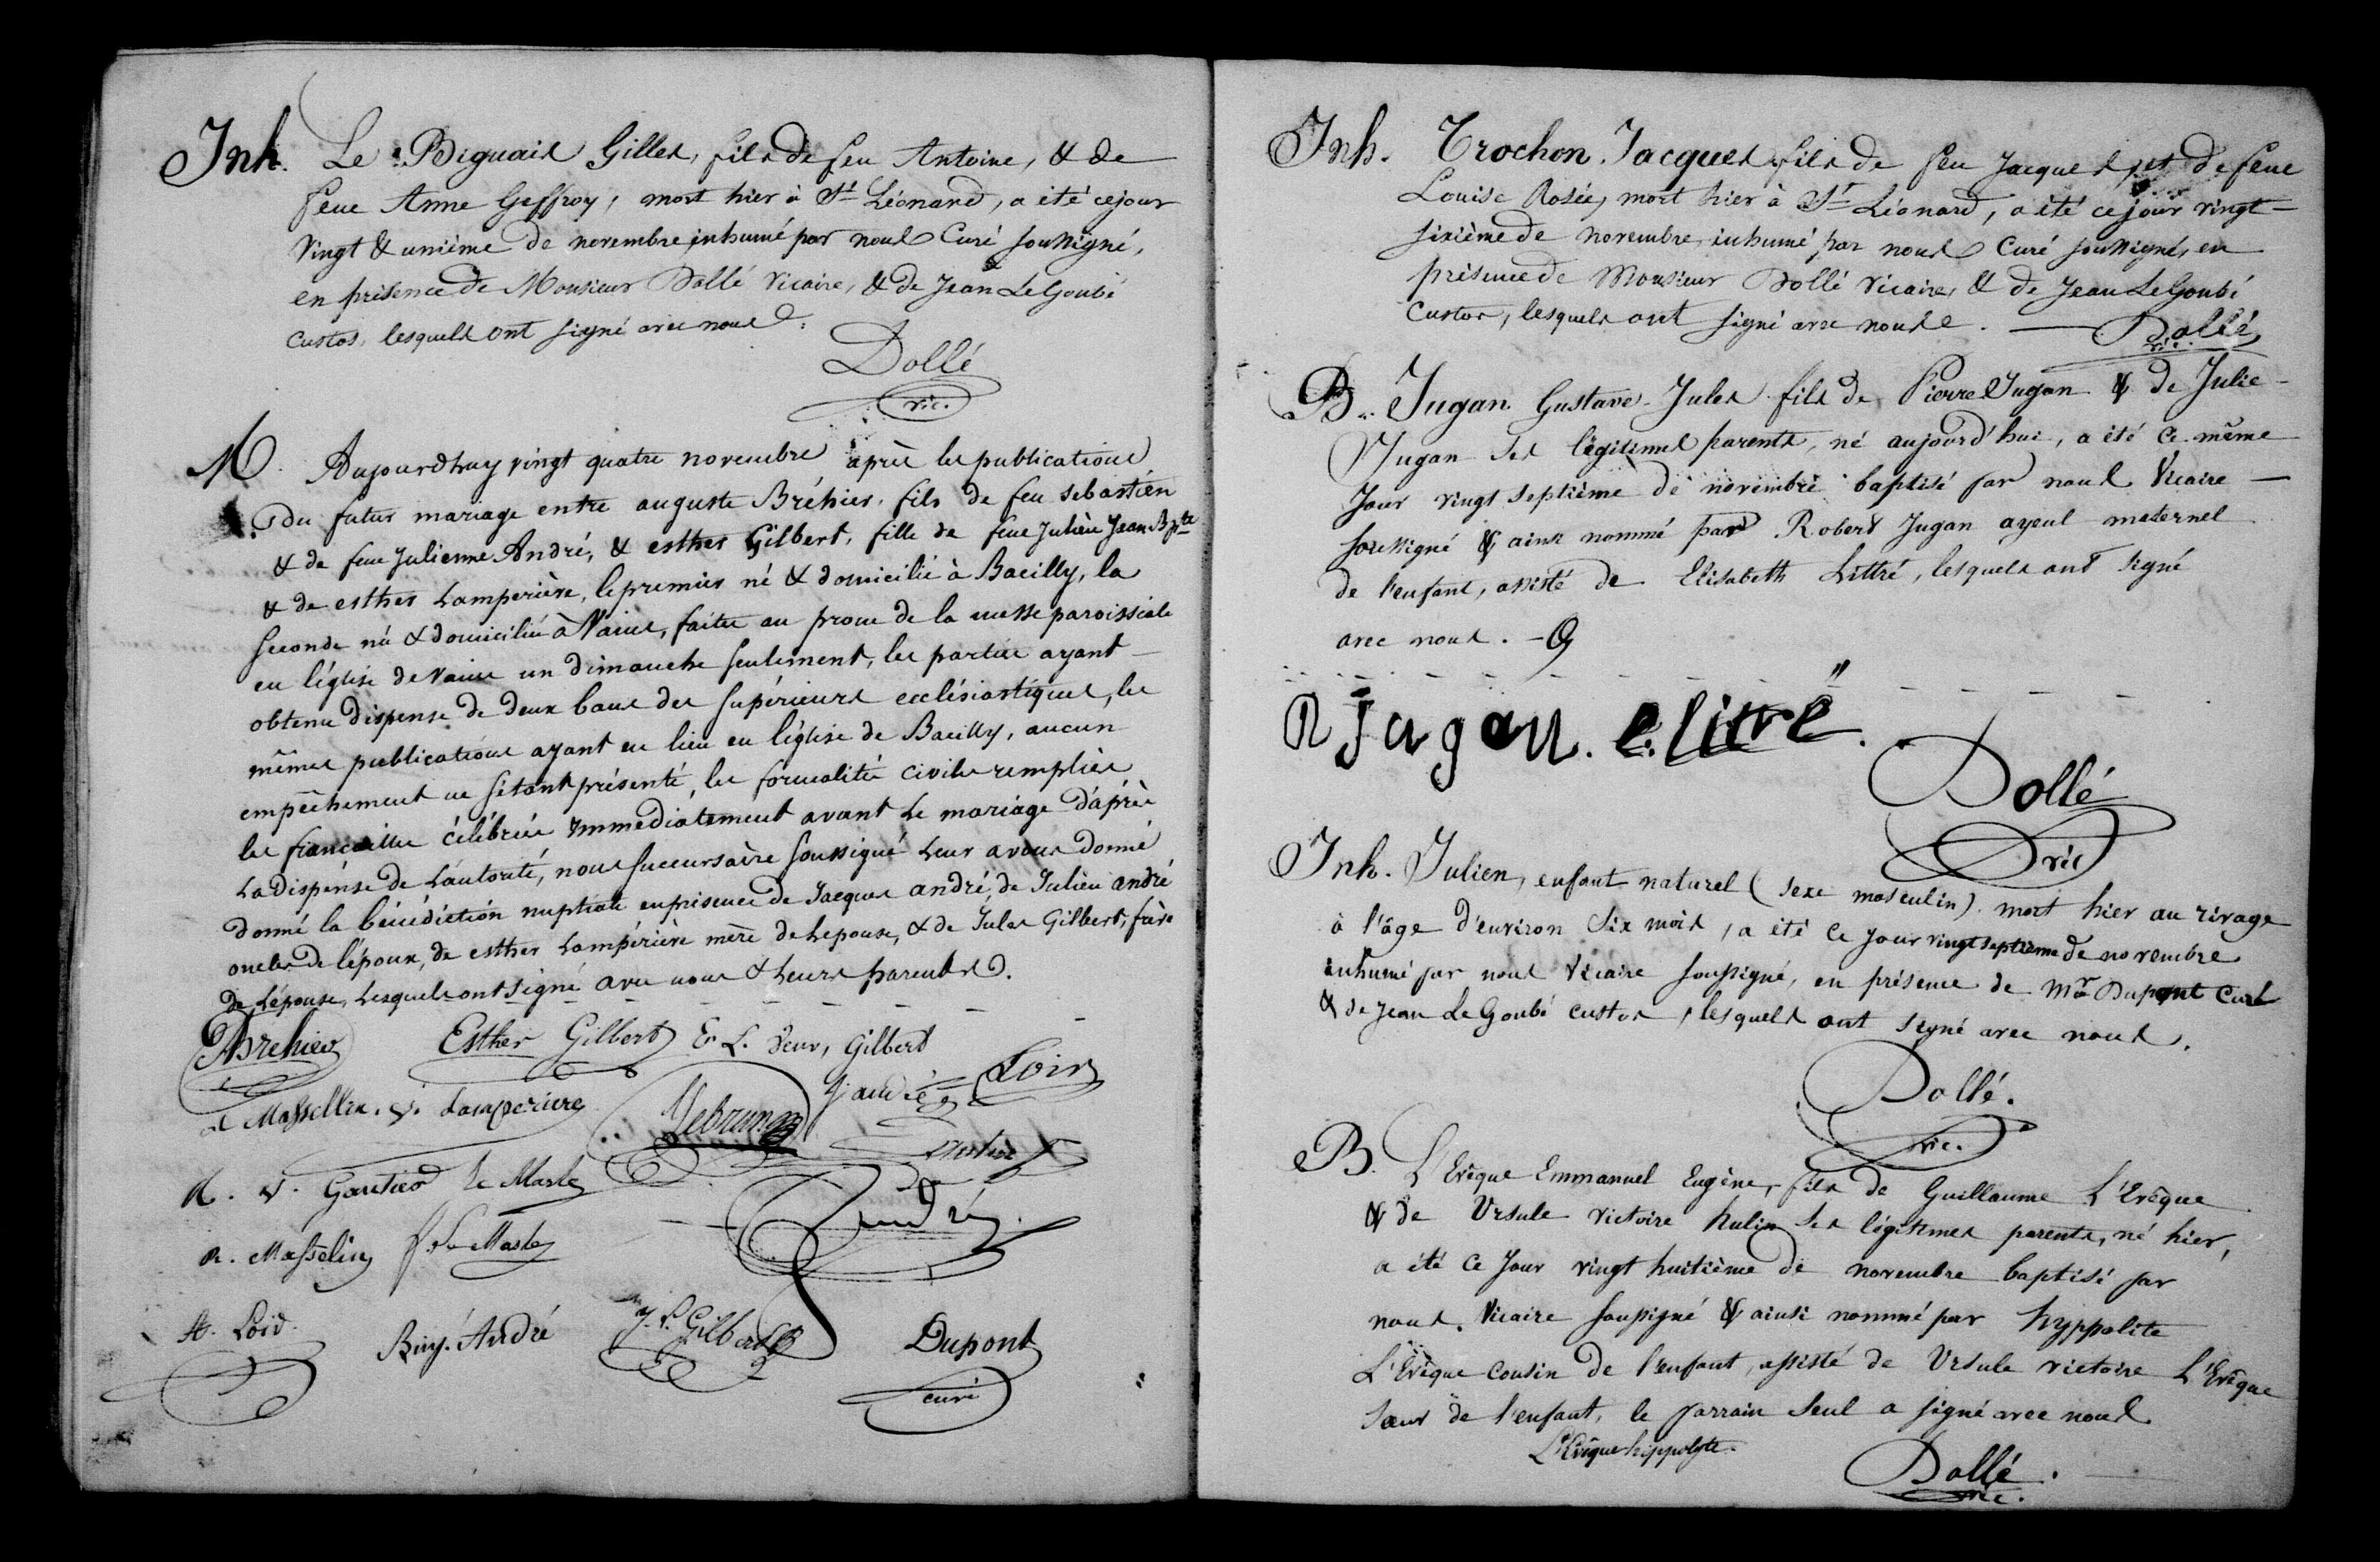 Inh. Le Biguais Gilles, fils de feu Antoine, & de
feue Anne Geffroy, mort hier à St Léonard, a été cejour
vingt & unième de novembre inhumé par nous Curé soussigné,
en présence de Monsieur Dollé Vicaire, & de Jean LeGoubé
Custos, lesquels ont signé avec nous.
Dollé
vic.
M. Aujourdhuy vingt quatre novembre après les publications
du futur mariage entre auguste Bréhier, fils de feu sebastien
& de feue Julienne André, & esther Gilbert, fille de feue Julien Jean Bpte
& de esther Lamperière, le premier né & domicilié à Bacilly, la
seconde né & domiciliée à Vains, faites au prone de la messe paroissiale
en l'église de Vains un dimanche seulement, les parties ayant
obtenu dispense de deux bans des supérieurs ecclésiastiques, les
mêmes publications ayant eu lieu en l'église de Bacilly, aucun
empêchement ne s'étant présenté, les formalités civiles remplies
les fiancailles célébrées immediatement avant le mariage d'après
la dispense de l'autorité, nous succursaire soussigné leur avons donné
donné la bénédiction nuptiale en présence de Jacques andré, de Julien andré
oncles de l'époux, de esther Lampérière mère de lepouse, & de Jules Gilbert, frère
de l'épouse, lesquels ont signé avec nous & leurs parents.
ABrehier Esther Gilbert E. L. veuv. Gilbert
J andré Loir
Masselin. v. Lamperiere Lebrun
V. Gautier Le Masle
André
R. Masselin Le Masle
A. Loir Binj. André J. P. Gilbert Dupont
curé
Inh. Trochon Jacques fils de feu Jacques et de feue
Louise Rosée, mort hier à St Léonard, a été ce jour vingt
sixième de novembre, inhumé par nous Curé soussigné, en
présence de Monsieur Dollé Vicaire, & de Jean LeGoubé
Custos, lesquels ont signé avec nous. Dollé
vic.
B. Jugan Gustave Jules fils de Pierre Jugan & de Julie
Jugan ses légitimes parents, né aujourd'hui, a été ce même
Jour vingt septième de novembre baptisé par nous Vicaire
soussigné & ainsi nommé par Robert Jugan ayeul maternel
de l'enfant, assisté de Elisabeth Littré, lesquels ont signé
avec nous.
R Jugan. e. litré
Dollé
vic
Inh. Julien, enfant naturel (sexe masculin) mort hier au rivage
à l'âge d'environ six mois, a été ce jour vingt septieme de novembre
inhumé par nous Vicaire soussigné, en présence de Mr Dupont Curé
& de Jean Le Goubé custos, lesquels ont signé avec nous.
Dollé.
vic.
B. L'Evêque Emmanuel Eugène, fils de Guillaume L'Evêque
& de Ursule victoire hulin ses légitimes parents, né hier,
a été ce Jour vingt huitième de novembre baptisé par
nous. Vicaire soussigné & ainsi nommé par hyppolite
L'Evêque cousin de l'enfant, assisté de Ursule victoire L'Evêque
soeur de l'enfant, le parrain seul a signé avec nous
L'Evêque hippolyte.
Dollé.
vic.